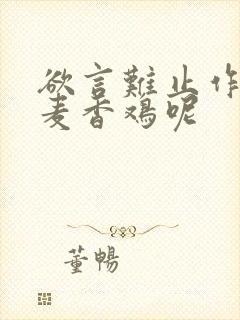 欲言難止作
麦香鸡呢
董暢